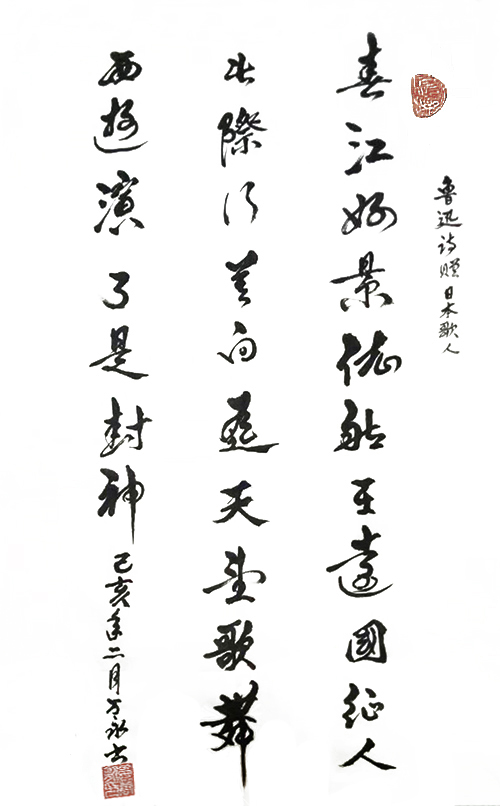 鲁迅诗赠日本歌人
春江好景依然在遠國征人
此際行莫向遥天望歌舞
西遊演了是封神
己亥年二月万永书